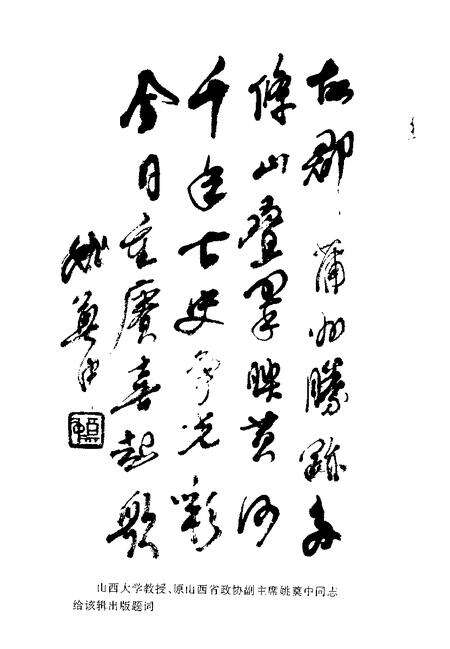 故郡蒲州勝跡多
條山疊翠映黄河
千年文史争光彩
今日重賡喜起歌
姚奠中
山西大学教授、原山西省政协副主席姚奠中同志
给该辑出版题词